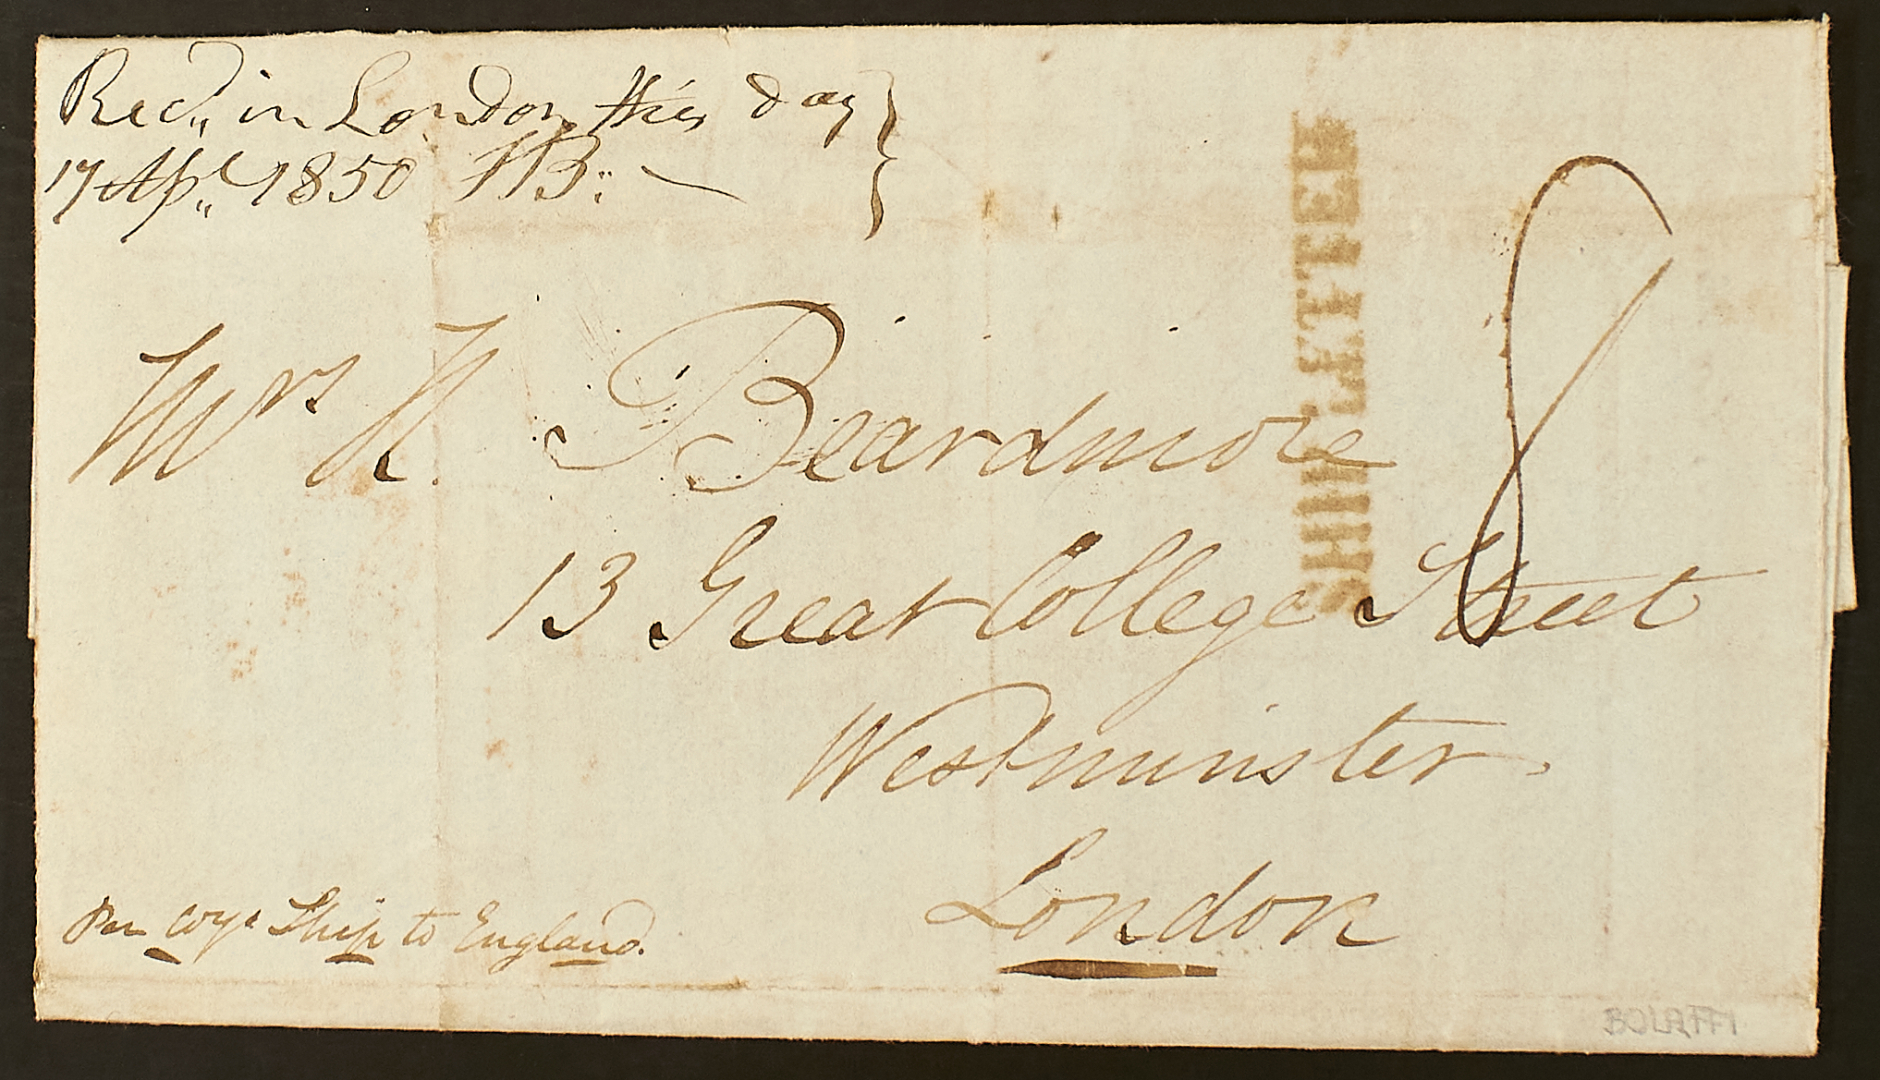 Recd,, in London this day
17 Apl,, 1850 HB:
SHIP LETTER
8
Mrs H. Beardmore
13 Great College Street
Westminster.
London
Per Coys Ship to England.
BOLAFFI